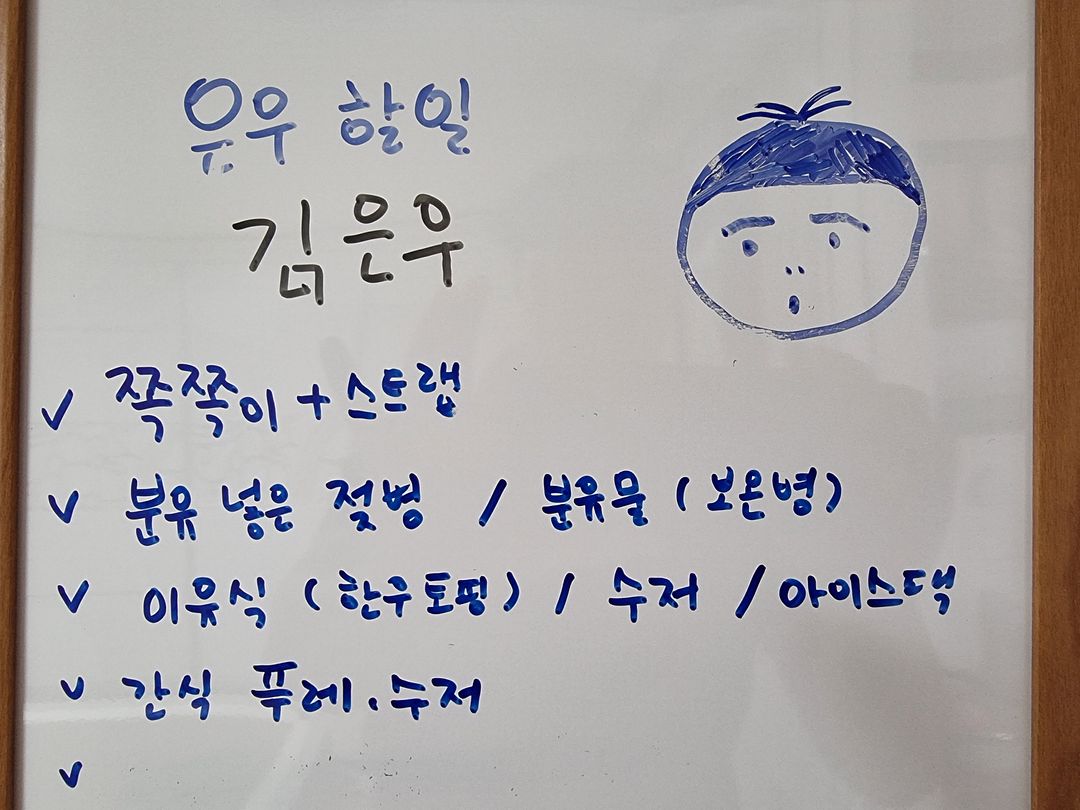 유우 할일
김은우
✓ 쪽쪽이 + 스트랩
✓ 분유 넣은 젖병 / 분유물 (보온병)
✓ 이유식 (한우토핑) / 수저 / 아이스댁
✓ 간식 퓨레. 수저
✓